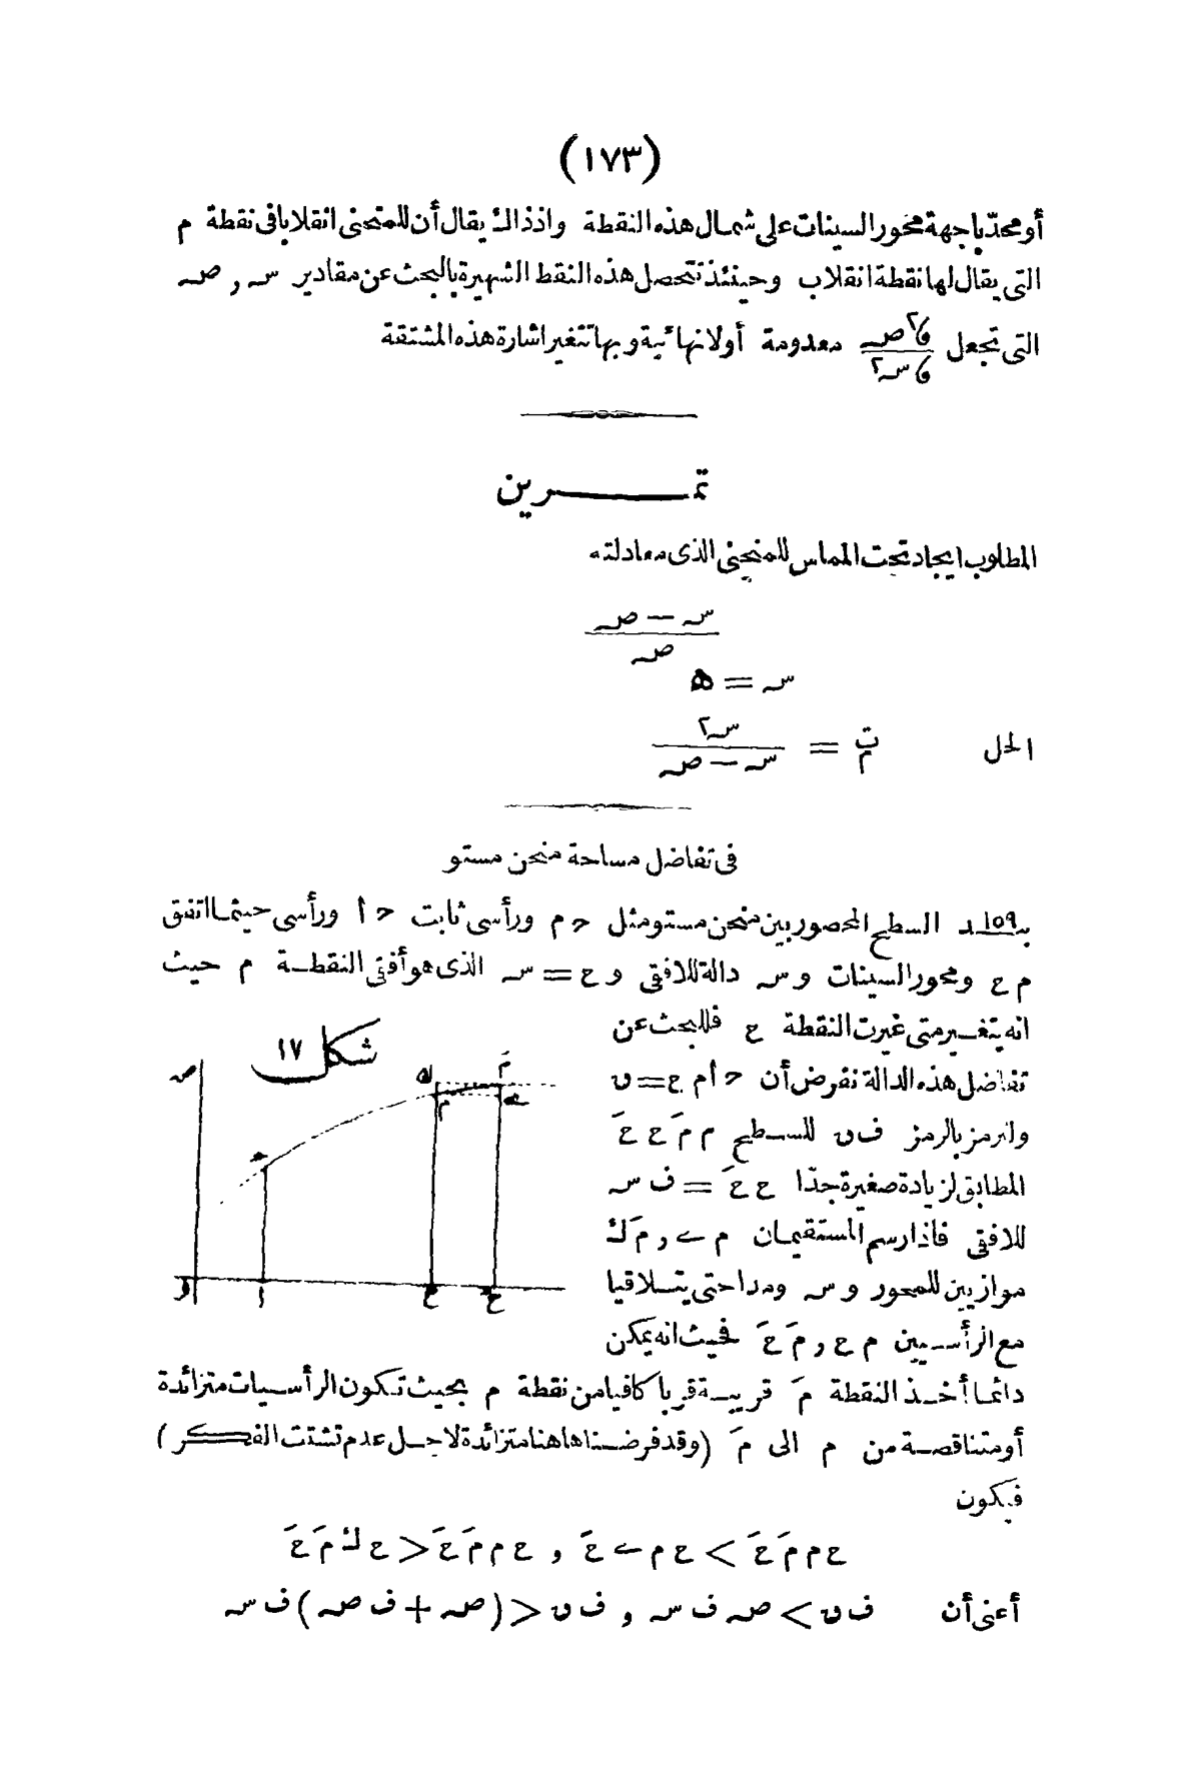 (١٧٣)
أو محدّبا جهة محور السينات على شمال هذه النقطة واذ ذاك يقال أن للمنحنى انقلابا فى نقطة م
التى يقال لها نقطة انقلاب وحينئذ تتحصل هذه النقط الشهيرة بالبحث عن مقادير سـ , صـ
التى تجعل ﻭ٢صـ / ﻭسـ٢ معدومة أولانهائية وبها تتغير اشارة هذه المشتقة
تمـرين
المطلوب ايجاد تحت المماس للمنحنى الذى معادلته
سـ − صـ / صـ
سـ = ھ
الحل تم = سـ٢ / سـ − صـ
فى تفاضل مساحة منحن مستو
١٥٩ السطح المحصور بين منحن مستو مثل ح م ورأسى ثابت ح أ ورأسى حيثما اتفق
م ع ومحور السينات و سـ دالة للافقى و ع = سـ الذى هو أفقى النقطـة م حيث
انه يتغـير متى غيرت النقطة ع فللبحث عن
تفاضل هذه الدالة نفرض أن ح أ م ع = ں
ولنرمز بالرمز ف ں للسـطح م مَ ع عَ
المطابق لزيادة صغيرة جدّا ع عَ = ف سـ
للافقى فاذا رسم المستقيمان م ے , مَ ك
موازيين للمحور و سـ ومدا حتى يتـلاقيا
مع الرأسـيين م ع , مَ عَ فحيث انه يمكن
دائما أخـذ النقطة مَ قريبـة قربا كافيا من نقطة م بحيث تكون الرأسـيات متزائدة
أو متناقصـة من م الى مَ (وقد فرضـنا هاهنا متزائدة لاجـل عدم تشتت الفكر)
فيكون
ع م مَ عَ > ع م ے عَ , ع م مَ عَ < ع ك مَ عَ
أعنى أن ف ں > صـ ف سـ , ف ں < (صـ + ف صـ) ف سـ
شكل ١٧
صـ
ك
مَ
م
ے
ح
و
أ
ع
عَ